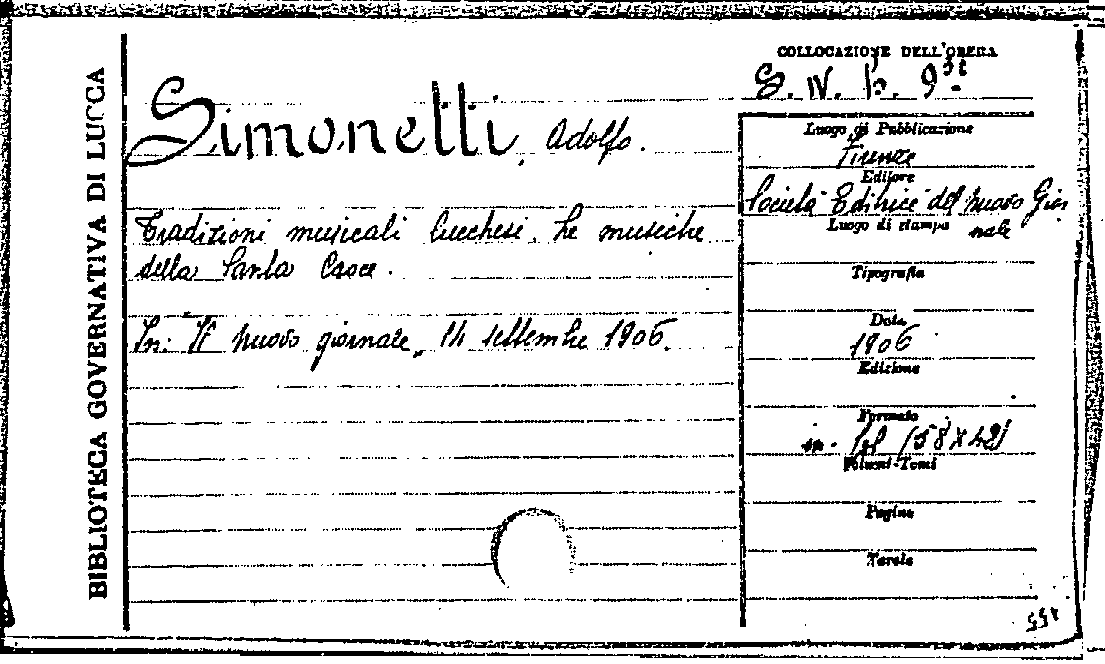 BIBLIOTECA GOVERNATIVA DI LUCCA
Simonetti, Adolfo.
Tradizioni musicali lucchesi. Le musiche
della Santa Croce.
In: "Il nuovo giornale", 14 settembre 1906.
COLLOCAZIONE DELL'OPERA
S. IV. b. 9
Luogo di Pubblicazione
Firenze
Editore
Società Editrice del nuovo Gior
nale
Luogo di stampa
Tipografia
Data
1906
Edizione
Formato
in-fol (58x42)
Volumi-Tomi
Pagine
Tavole